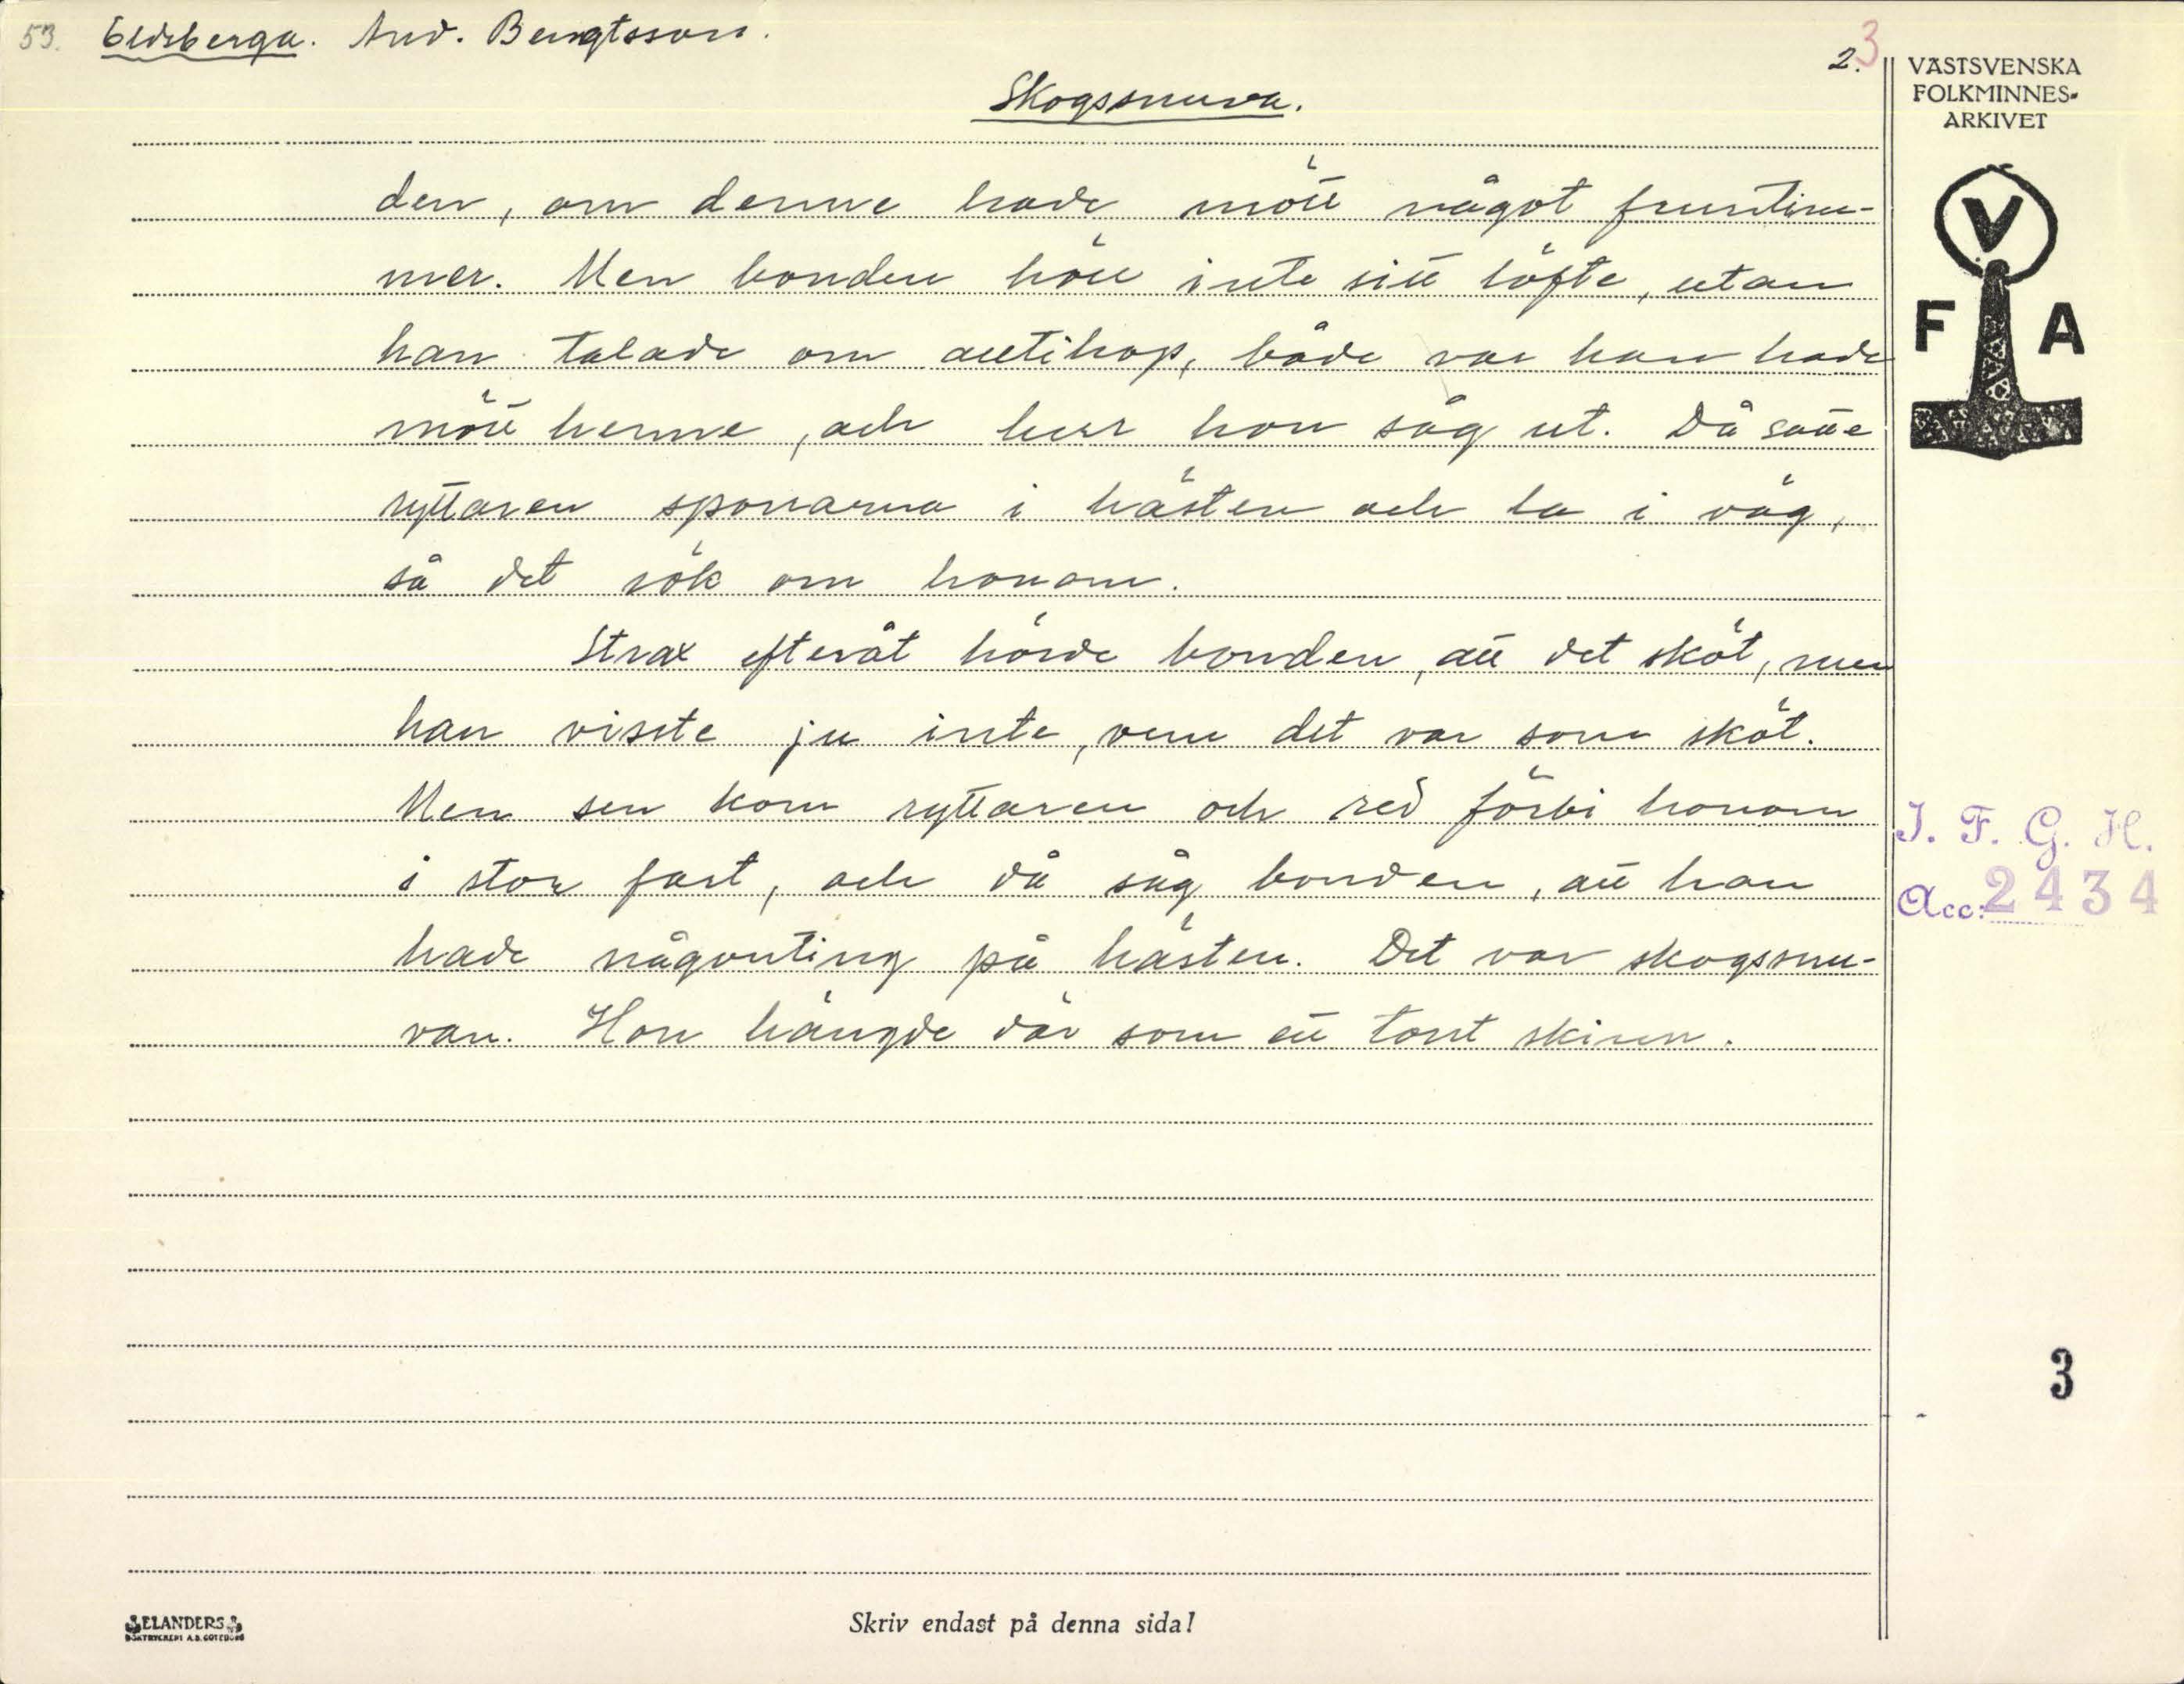 53. Eldsberga. And. Bengtsson.
2. 3
Skogssnuva.
VÄSTSVENSKA
FOLKMINNES-
ARKIVET
V
F A
den, om denne hade mött något fruntim-
mer. Men bonden höll inte sitt löfte, utan
han talade om alltihop, både var han hade
mött henne, och hur hon såg ut. Då satte
ryttaren sporrarna i hästen och la i väg,
så det rök om honom.
Strax efteråt hörde bonden, att det sköt, men
han visste ju inte, vem det var som sköt.
Men sen kom ryttaren och red förbi honom
i stor fart, och då såg bonden, att han
hade någonting på hästen. Det var skogssnu-
van. Hon hängde där som ett tort skinn.
I. F. G. H.
Acc: 2434
3
ELANDERS
BOKTRYCKERI A.B. GÖTEBORG
Skriv endast på denna sida!